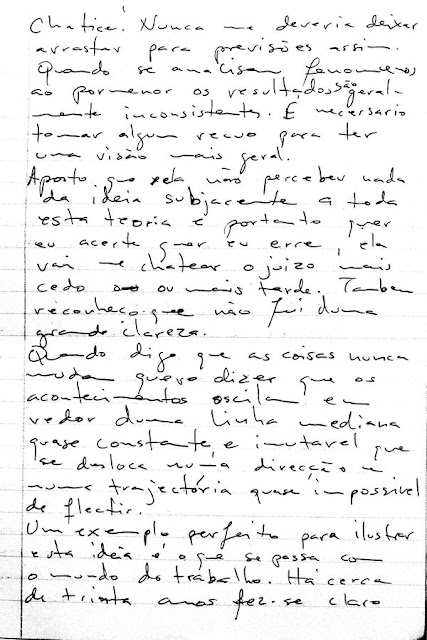 Chatice! Nunca me deveria deixar
arrastar para previsões assim.
Quando se analisam fenomenos
ao pormenor os resultados são geral-
mente inconsistentes. É necessario
tomar algum recuo para ter
uma visão mais geral.
Aposto que ela não percebeu nada
da ideia subjacente a toda
esta teoria e portanto quer
eu acerte quer eu erre, ela
vai me chatear o juizo mais
cedo ou mais tarde. Tambem
reconheço que não fui duma
grande clareza.
Quando digo que as coisas nunca
mudam quero dizer que os
acontecimentos oscilam em
redor duma linha mediana
quase constante e imutavel que
se desloca numa direcção e
numa trajectória quase impossivel
de flectir.
Um exemplo perfeito para ilustrar
esta ideia é o que se passa com
o mundo do trabalho. Há cerca
de trinta anos fez-se claro